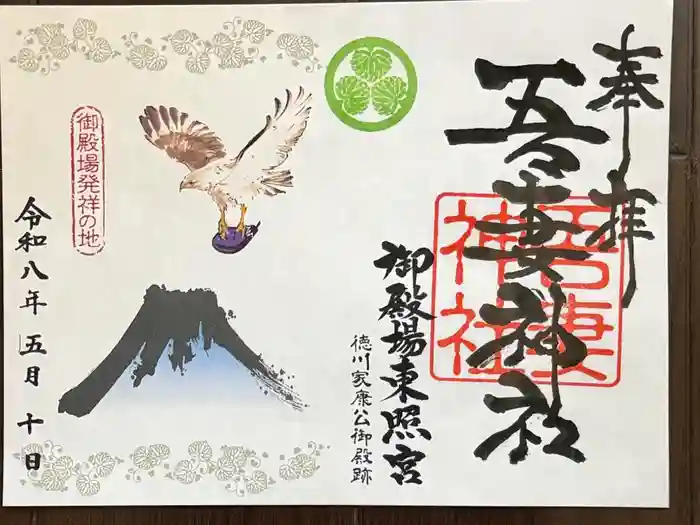 奉拝
吾妻神社
吾妻
神社
御殿場東照宮
徳川家康公御殿跡
御殿場発祥の地
令和八年五月十日